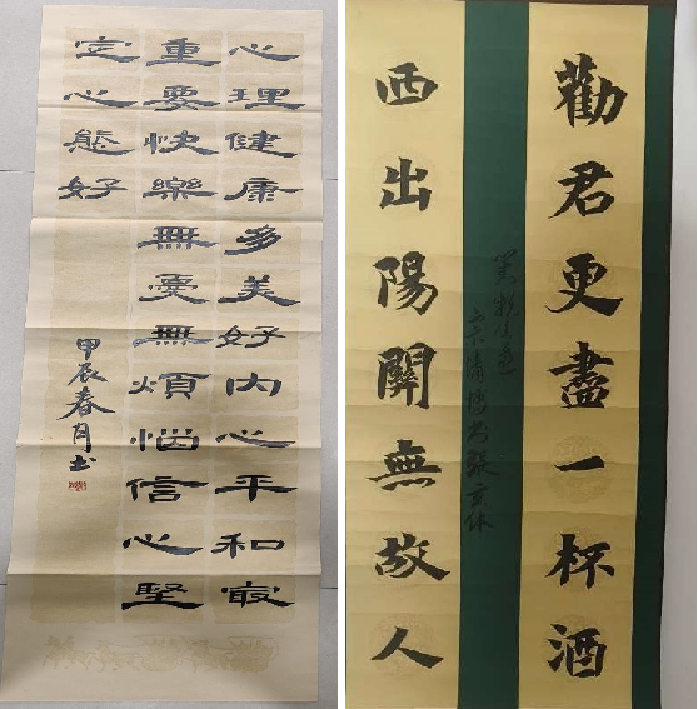 心理健康多美好内心平和最
重要快樂無憂無煩惱信心堅
定心態好
甲辰春月書
勸君更盡一杯酒
西出陽關無故人